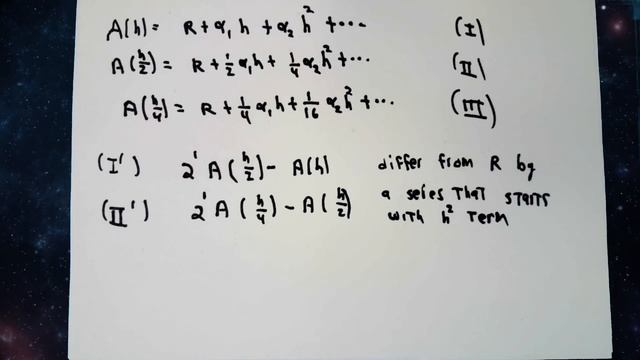 A(h) = R + α₁h + α₂h² + ··· (I)
A(h/2) = R + 1/2 α₁h + 1/4 α₂h² + ··· (II)
A(h/4) = R + 1/4 α₁h + 1/16 α₂h² + ··· (III)
(I') 2¹A(h/2) − A(h) differ from R by
a series that starts
(II') 2¹A(h/4) − A(h/2) with h² term